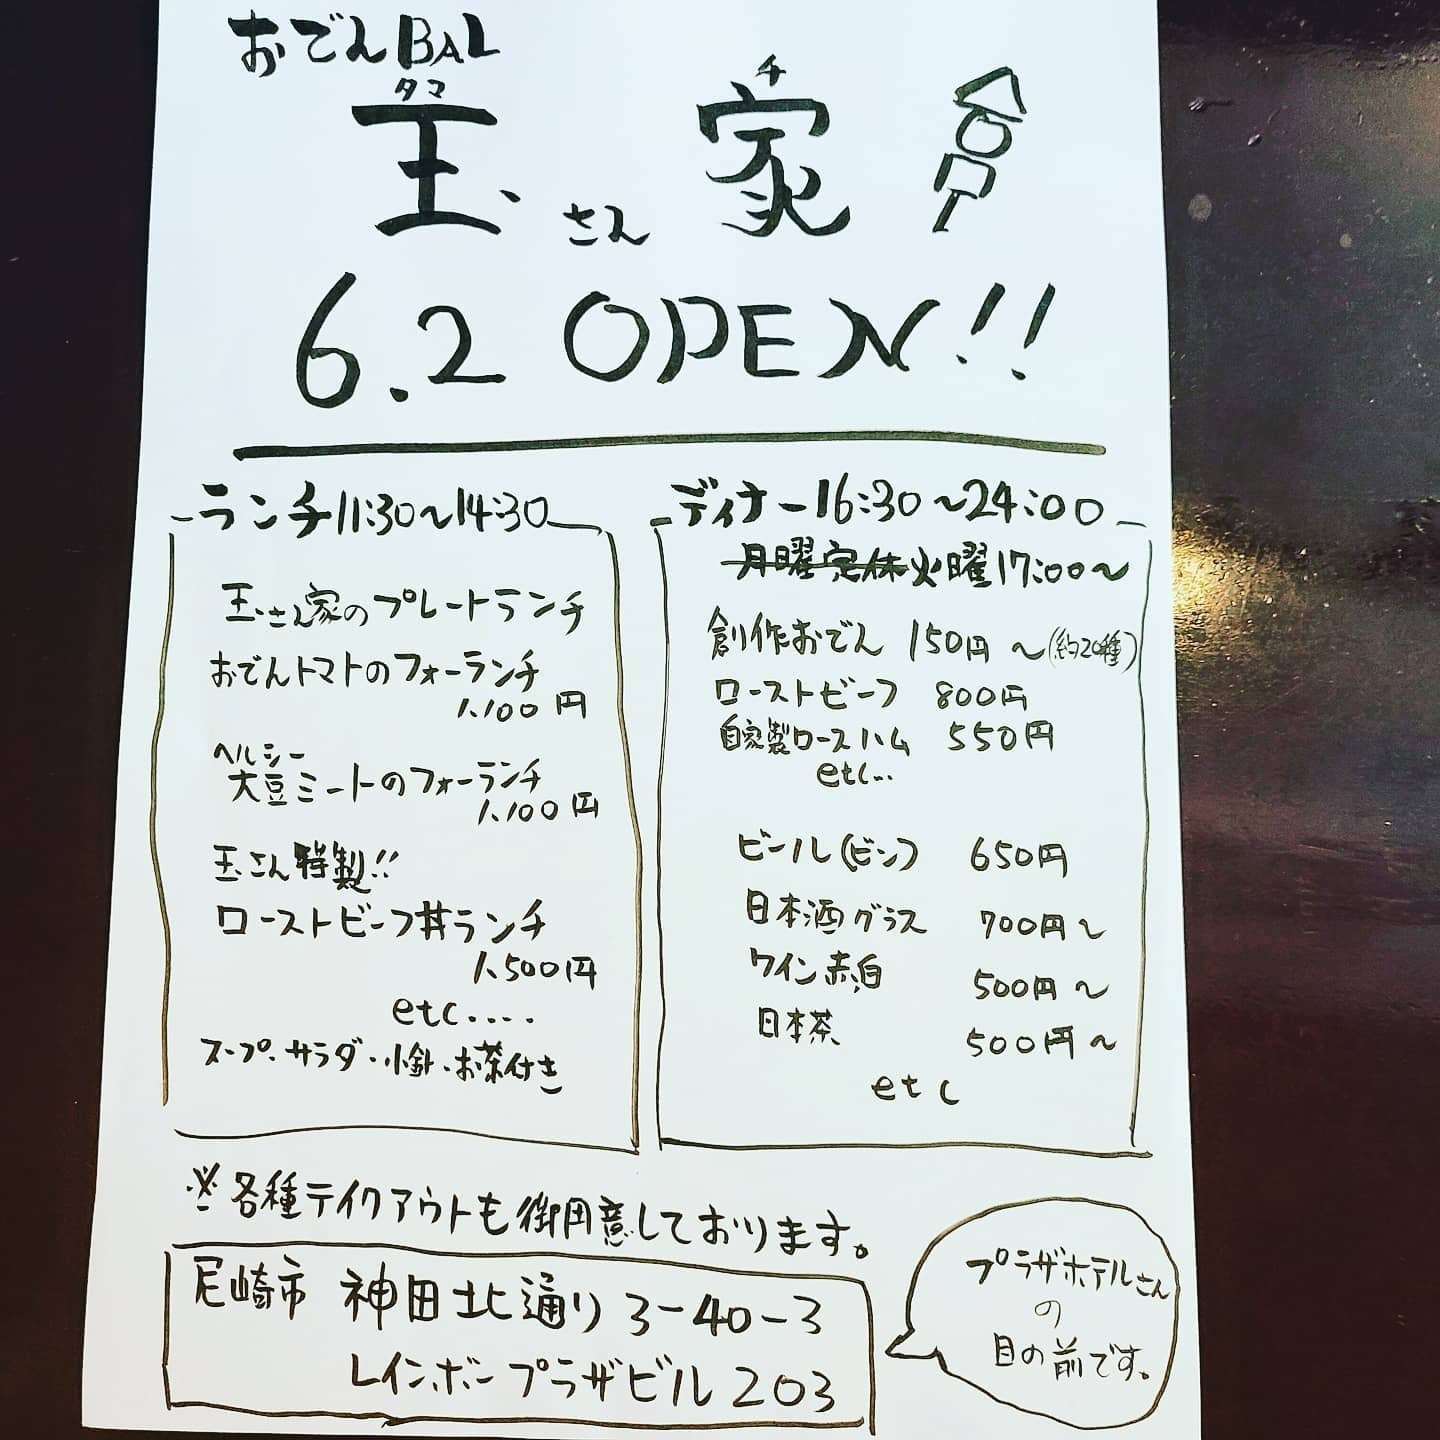 おでんBAL
タマ チ
玉さん家
6.2 OPEN!!
ランチ11:30〜14:30
玉さん家のプレートランチ
おでんトマトのフォーランチ
1,100円
ヘルシー
大豆ミートのフォーランチ
1,100円
玉さん特製!!
ローストビーフ丼ランチ
1,500円
etc....
スープ・サラダ・小鉢・お茶付き
ディナー16:30〜24:00
月曜定休火曜17:00〜
創作おでん 150円〜(約20種)
ローストビーフ 800円
自家製ロースハム 550円
etc...
ビール(ビン) 650円
日本酒グラス 700円〜
ワイン赤,白 500円〜
日本茶 500円〜
etc
※各種テイクアウトも御用意しております。
尼崎市 神田北通り3-40-3
レインボープラザビル203
プラザホテルさん
の
目の前です。